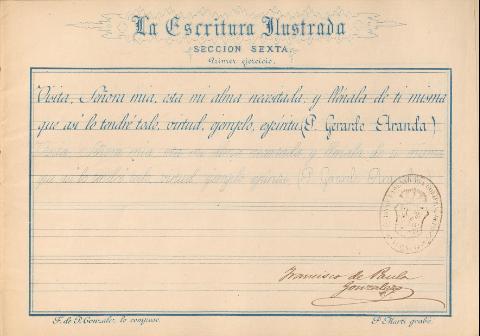 La Escritura Ilustrada
SECCION SEXTA.
Primer ejercicio.
Visita, Señora mia, esta mi alma necesitada, y llénala de ti misma
que así lo tendré todo, virtud, ejemplo, espíritu (P. Gerardo Aranda)
Visita, Señora mia, esta mi alma necesitada y llénala de ti misma
que así lo tendré todo, virtud, ejemplo, espíritu (P. Gerardo Aranda)
Francisco de Paula
Gonzalez
F. de P. Gonzalez, lo compuso.
P. Martí grabó.